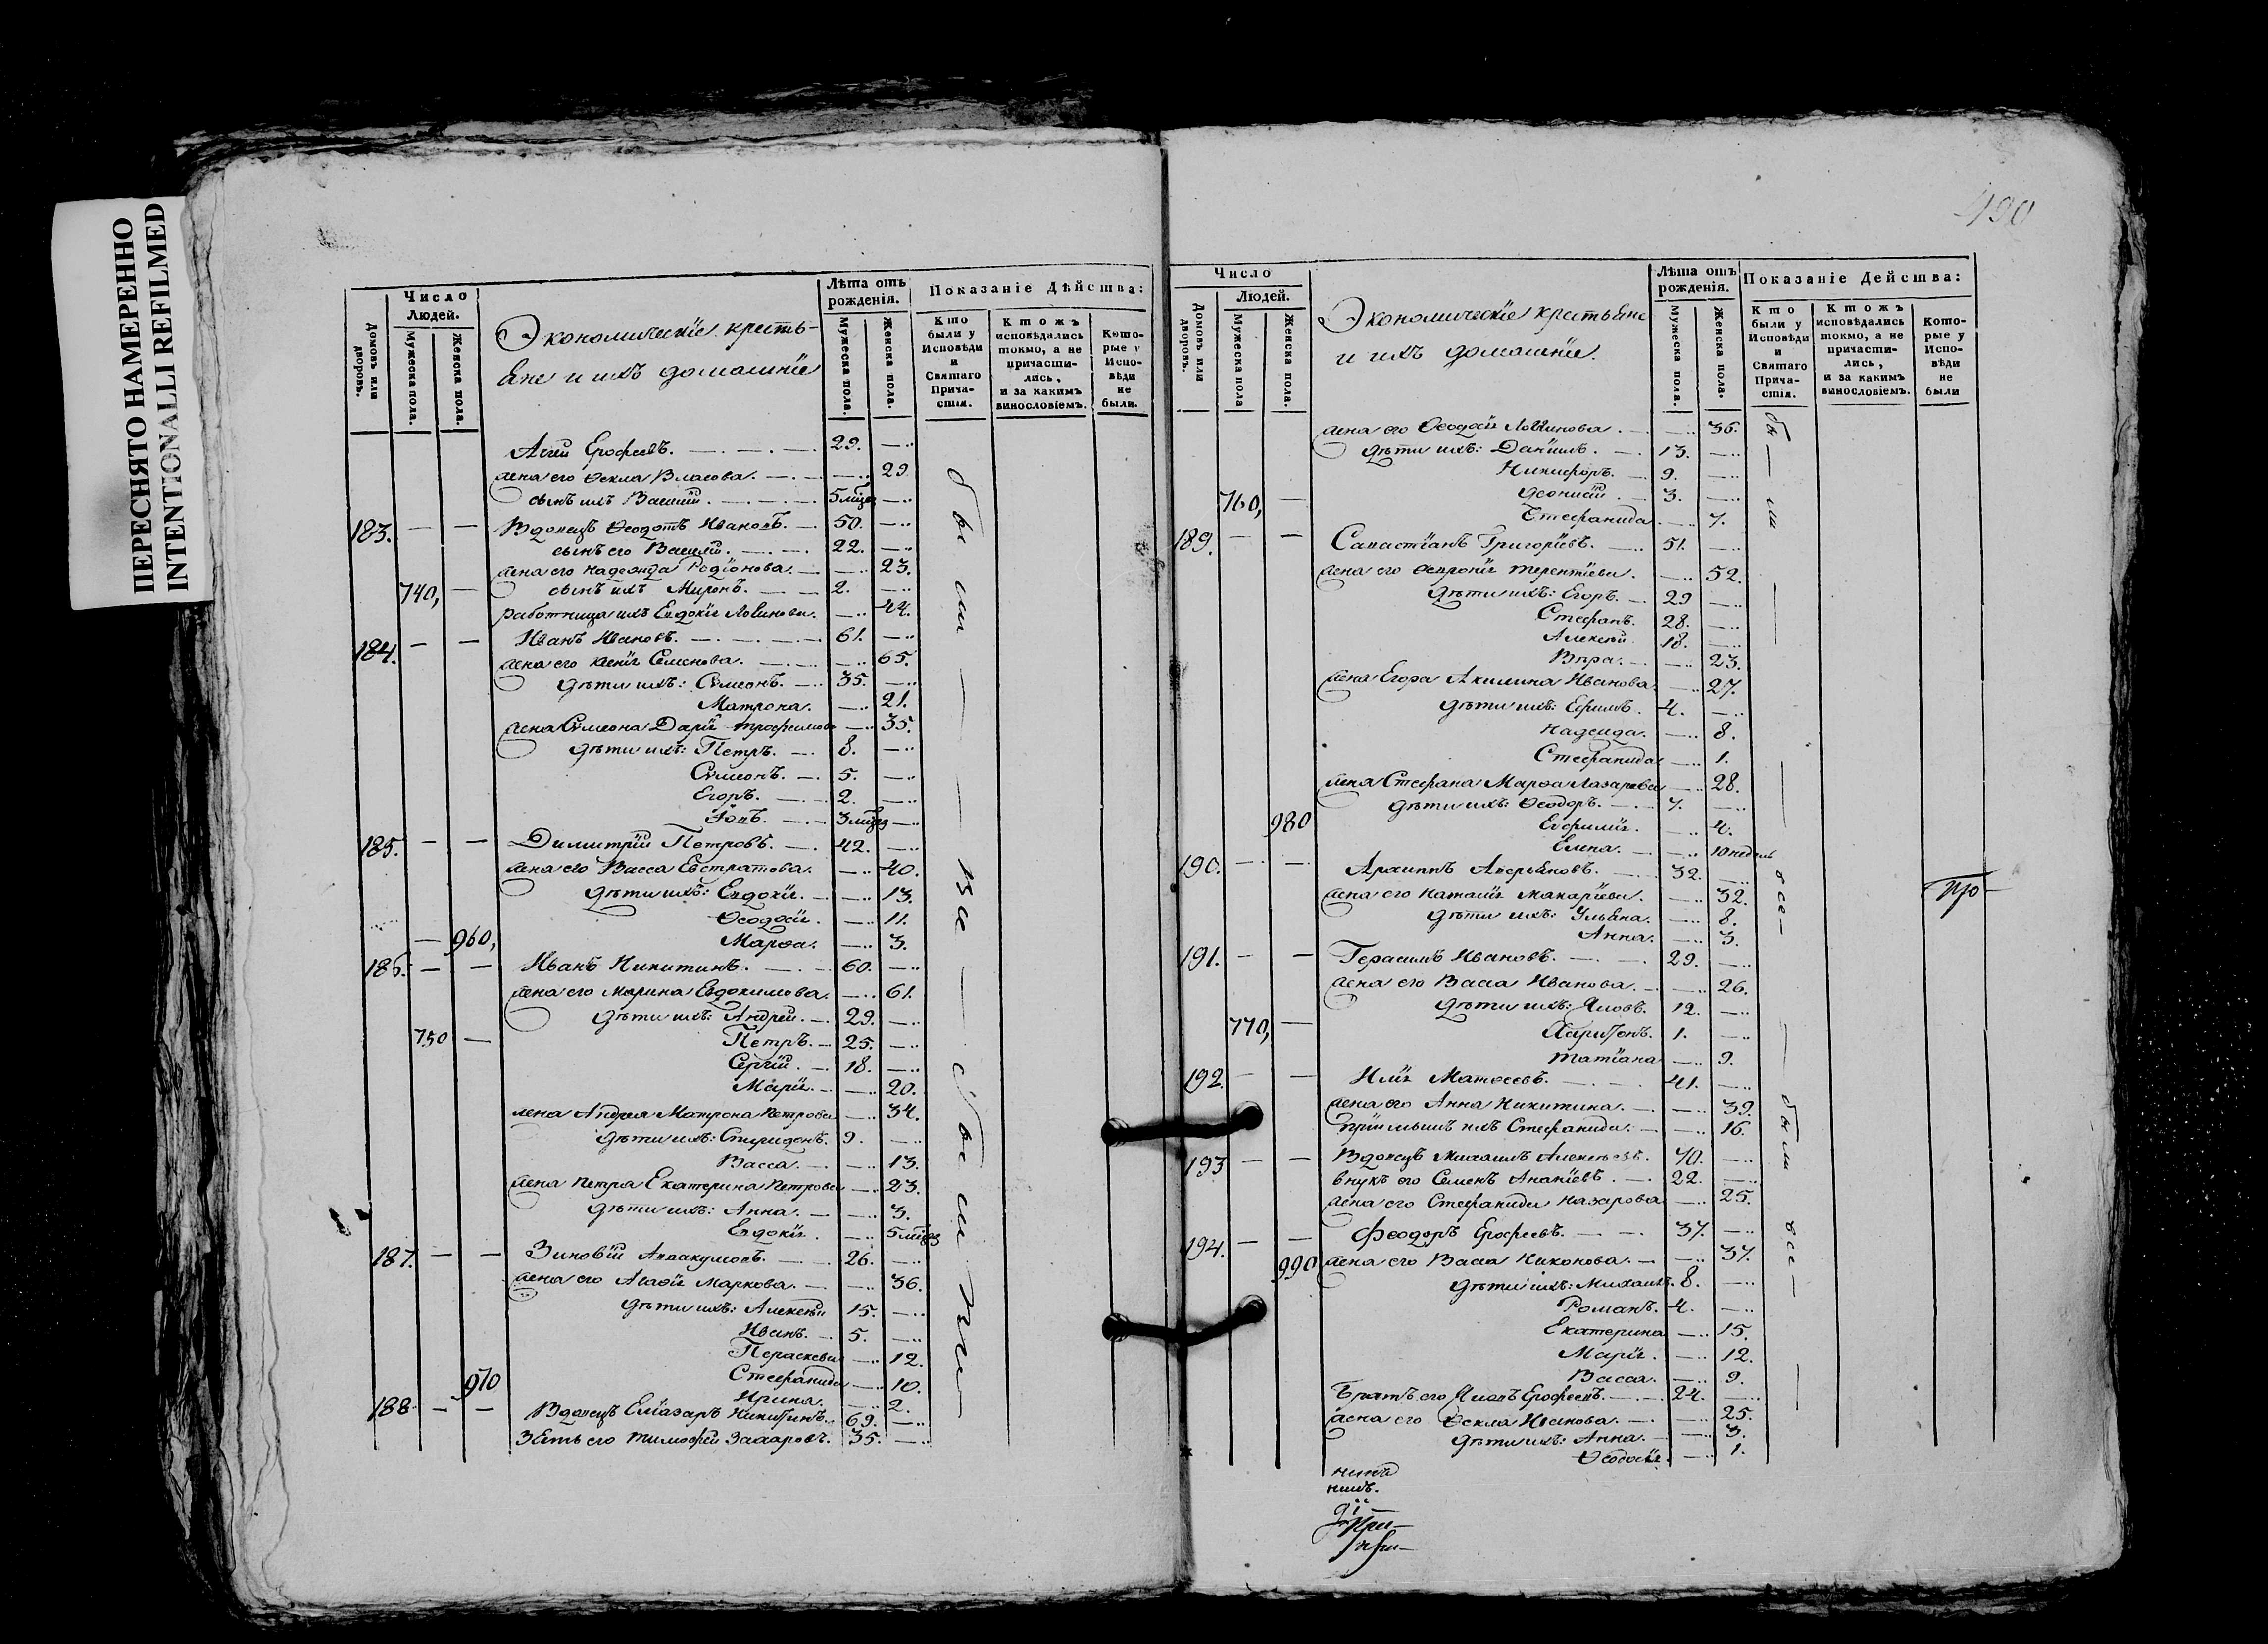 ПЕРЕСНЯТО НАМЕРЕННО
INTENTIONALLI REFILMED
Число Людей.
Домовъ или дворовъ.
Мужеска пола.
Женска пола.
Экономическіе кресть-
яне и ихъ домашніе
Лѣта отъ рожденія.
Мужеска пола.
Женска пола.
Показаніе Дѣйства:
Кто были у Исповѣди и Святаго Прича-стія.
Ктожъ исповѣдались токмо, а не причасти-лись, и за какимъ винословіемъ.
Кото-рые у Испо-вѣди не были.
Агей Ерофеевъ. 29.
жена его Ѳекла Власова. 29.
сынъ ихъ Василій. 5 мцѣз
183. Вдовецъ Ѳеодотъ Ивановъ. 50.
сынъ его Василій. 22.
жена его Надежда Родіонова. 23.
740, сынъ ихъ Миронъ. 2.
работница ихъ Евдокія Логинова. 44.
184. Иванъ Ивановъ. 61.
жена его Ксенія Семенова. 65.
дѣти ихъ: Сѵмеонъ. 35.
Матрона. 21.
жена Сѵмеона Дарія Трофимова 35.
дѣти ихъ: Петръ. 8.
Сѵмеонъ. 5.
Егоръ. 2.
Іовъ. 3 мцѣз
185. Димитрій Петровъ. 42.
жена его Васса Евстратова. 40.
дѣти ихъ: Евдокія. 13.
Ѳеодосія. 11.
960, Марѳа. 3.
186. Иванъ Никитинъ. 60.
жена его Марина Евдокимова. 61.
дѣти ихъ: Андрей. 29.
750 Петръ. 25.
Сергій. 18.
Марія. 20.
жена Андрея Матрона Петрова 34.
дѣти ихъ: Спиридонъ. 9.
Васса. 13.
жена Петра Екатерина Петрова 23.
дѣти ихъ: Анна. 3.
Евдокія. 5 мцѣз
187. Зиновій Аввакумовъ. 26.
жена его Агаѳія Маркова. 36.
дѣти ихъ: Алексѣй 15.
Иванъ. 5.
Параскева 12.
970 Стефанида 10.
Ирина. 2.
188. Вдовецъ Еліазаръ Никитинъ. 69.
зять его Тимофей Захаровъ. 35.
бы ли все бы ли
490
Число
Людей.
Домовъ или дворовъ.
Мужеска пола
Женска пола.
Экономическіе крестьяне
и ихъ домашніе.
Лѣта отъ рожденія.
Мужеска пола.
Женска пола.
Показаніе Действа:
Кто были у Исповѣди и Святаго Прича-стія.
Ктожъ исповѣдались токмо, а не причасти-лись, и за какимъ винословіемъ.
Кото-рые у Испо-вѣди не были
жена его Ѳеодосія Логинова. 36.
дѣти ихъ: Даніилъ. 13.
Никифоръ. 9.
Леонтій. 3.
760, Стефанида. 7.
189. Савастіанъ Григорьевъ. 51.
жена его Ѳевронія Терентіева. 52.
дѣти ихъ: Егоръ. 29
Стефанъ. 28.
Алексѣй. 18.
Вѣра. 23.
жена Егора Акилина Иванова. 27.
дѣти ихъ: Ефимъ. 4.
Надежда. 8.
Стефанида 1.
жена Стефана Марѳа Лазарева 28.
дѣти ихъ: Ѳеодоръ. 7.
980 Евфимія. 4.
Елена. 10 недель
190. Архиппъ Аверьяновъ. 32.
жена его Наталія Макаріева. 32.
дѣти ихъ: Ульяна. 8.
Анна. 3.
191. Герасимъ Ивановъ. 29.
жена его Васса Иванова. 26.
дѣти ихъ: Яковъ. 12.
770, Харитонъ. 1.
Татіана 9.
192. Илія Матѳеевъ. 41.
жена его Анна Никитина. 39.
пріемышъ ихъ Стефанида. 16.
193 Вдовецъ Михаилъ Алексѣевъ. 70.
внукъ его Семенъ Ананіевъ. 22.
жена его Стефанида Назарова 25.
194. Феодоръ Ерофеевъ. 37.
990 жена его Васса Никонова. 37.
дѣти ихъ: Михаилъ. 8.
Романъ. 4.
Екатерина 15.
Марія. 12.
Васса. 9.
братъ его Яковъ Ерофеевъ. 24.
жена его Ѳекла Иванова. 25.
дѣти ихъ: Анна. 3.
Ѳеодосія. 1.
бы ли все были все